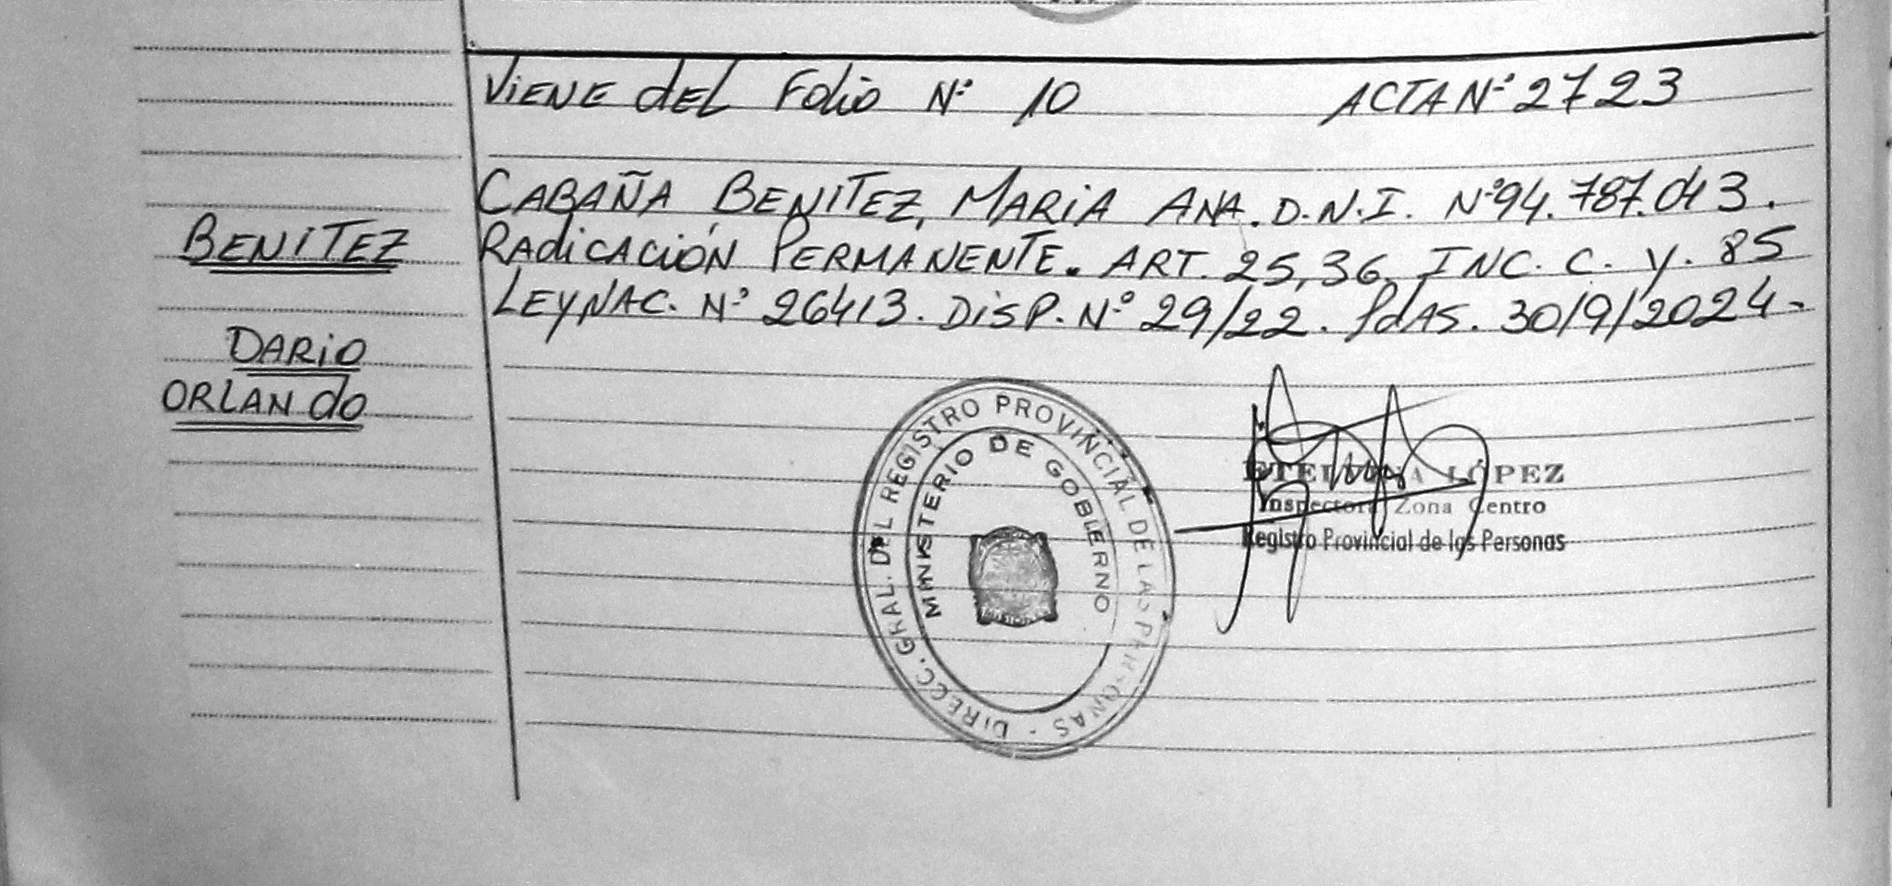 Viene del Folio Nº 10 ACTA Nº 2723
BENITEZ
DARIO
ORLANDO
CABAÑA BENITEZ, MARIA ANA. D.N.I. Nº 94.787.043.
RADICACIÓN PERMANENTE. ART. 25, 36, INC. C. Y. 85
LEY NAC. Nº 26413. DISP. Nº 29/22. PdAS. 30/9/2024-
DIRECC. GRAL. DEL REGISTRO PROVINCIAL DE LAS PERSONAS -
MINISTERIO DE GOBIERNO
ETELVINA LÓPEZ
Inspectora Zona Centro
Registro Provincial de las Personas